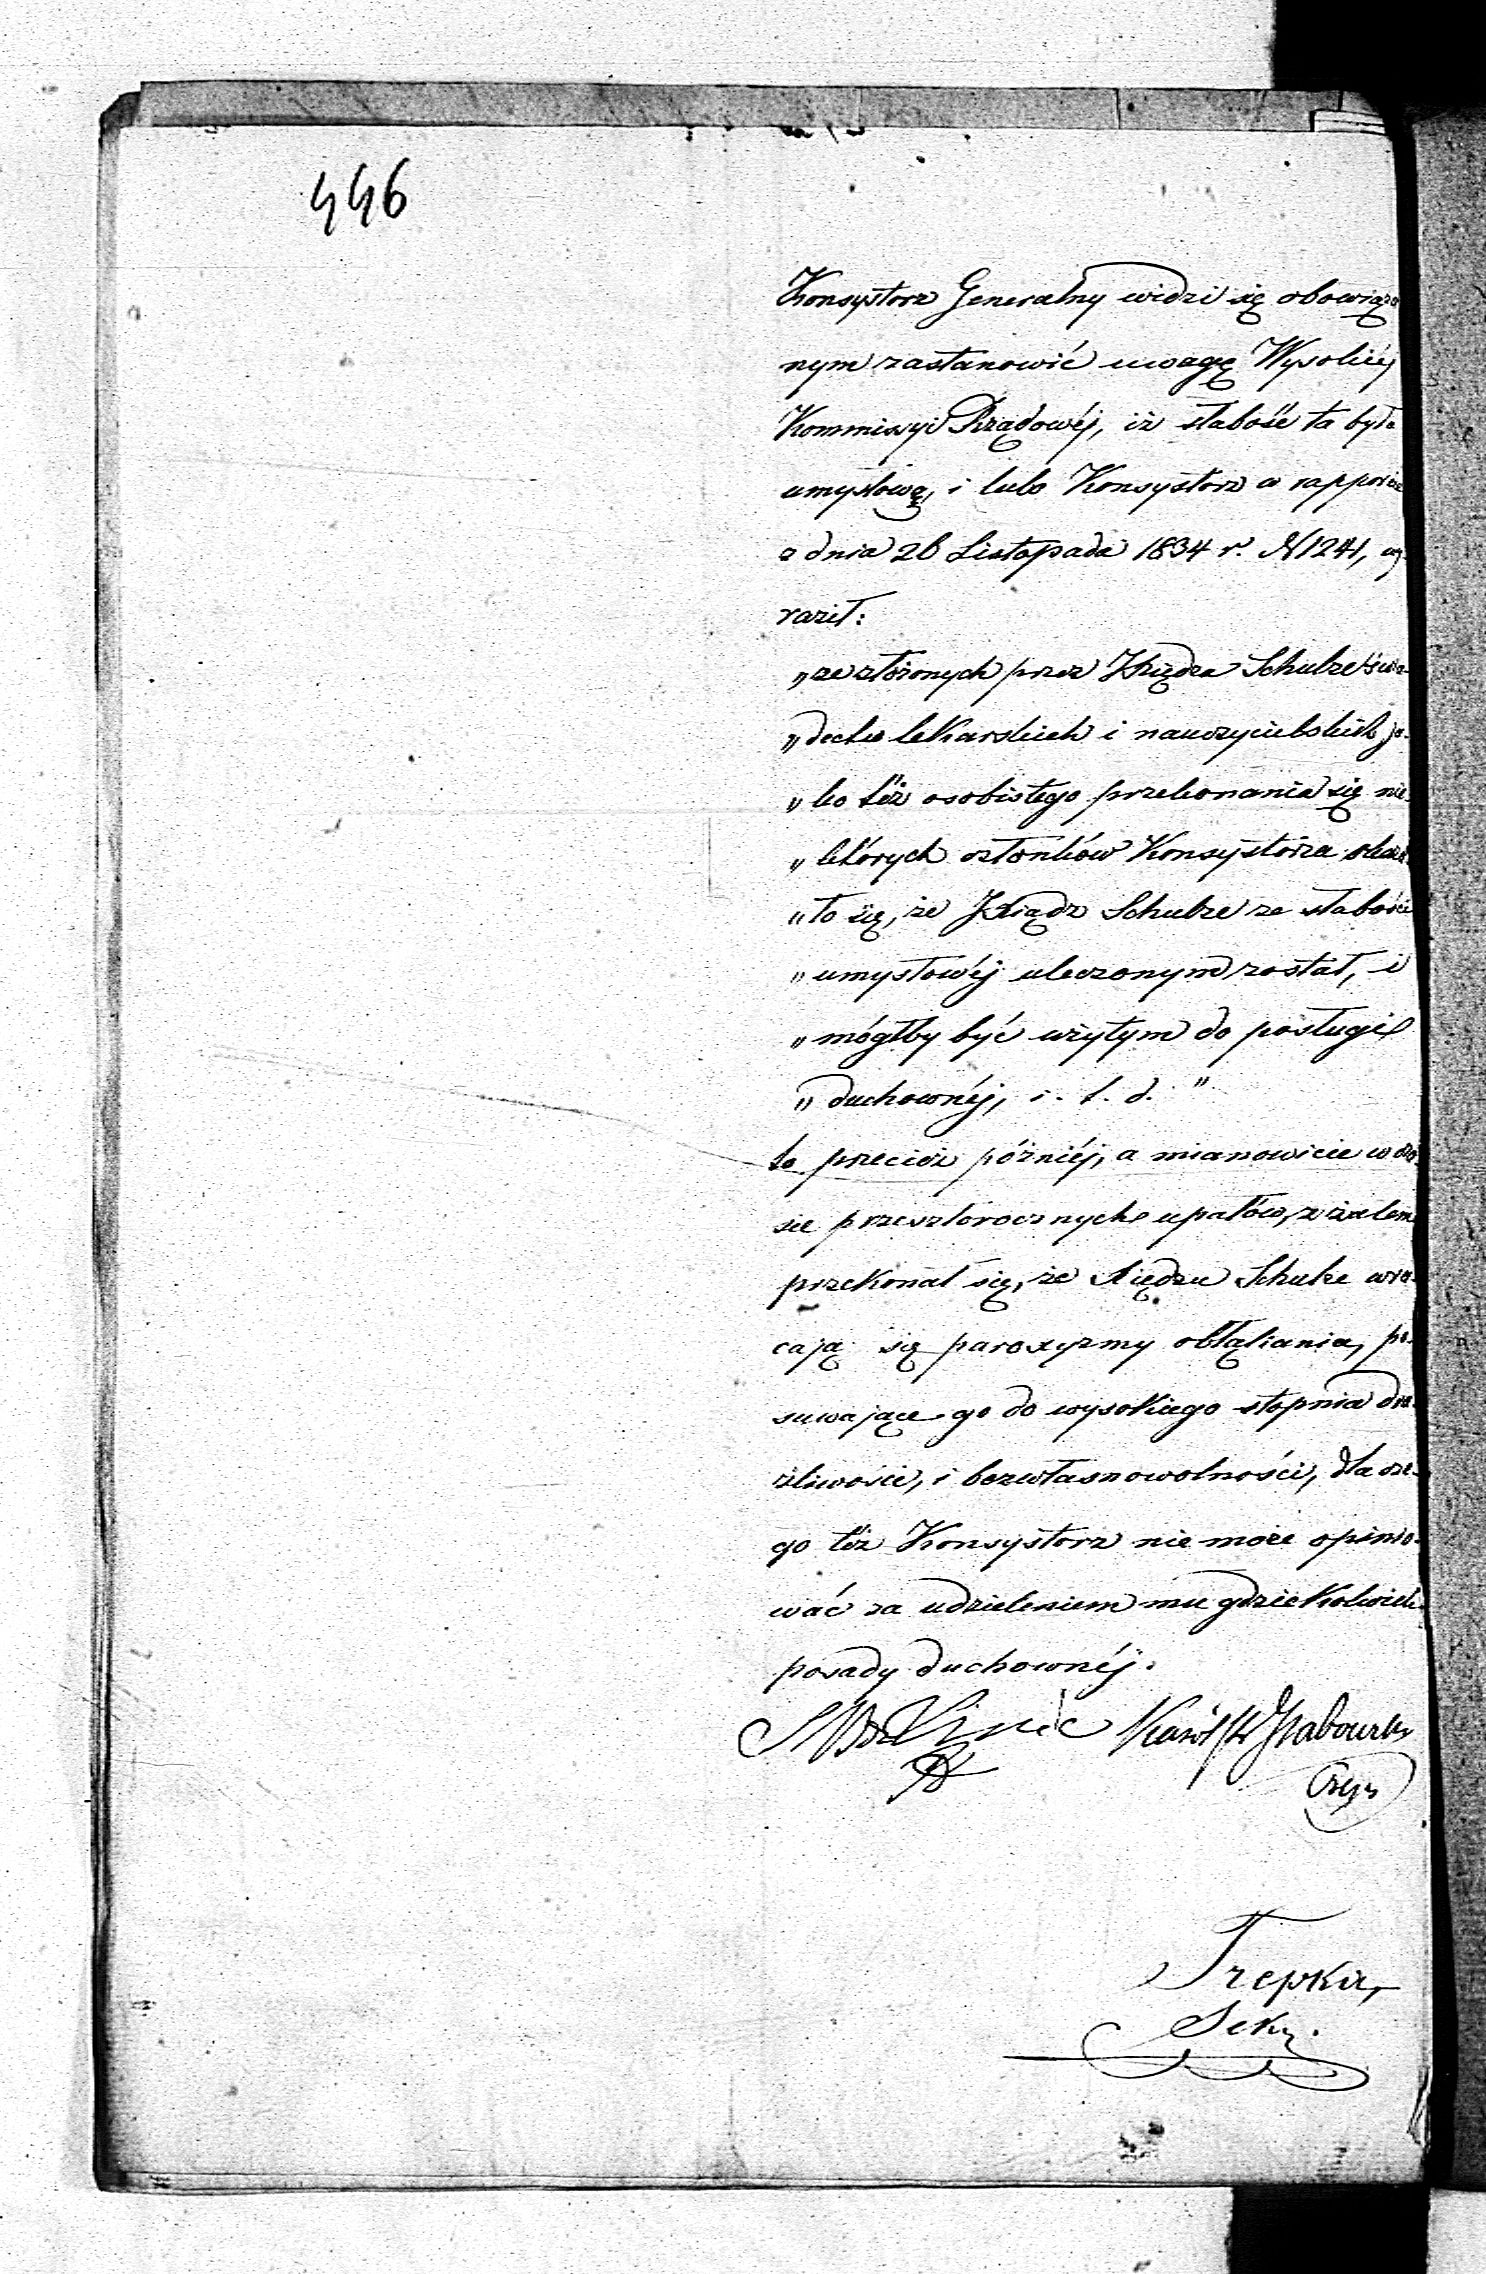 446
Konsystorz Generalny widzi się obowiąza
nym zastanowić uwagę Wysokiéj
Kommisyi Rządowéj, iż słabość ta była
umysłową, i lubo Konsystorz w rapporcie
z dnia 26 Listopada 1834 r. N 1241, wy-
raził:
„ze złożonych przez Xiędza Schulze świa-
„dectw lekarskich i nauczycielskich ja-
„ko też osobistego przekonania się nie-
„których członków Konsystorza okaza
„ło się, że Xiądz Schulze ze słabości
„umysłowéj uleczonym został, i
„mógłby być użytym do posługi
„duchownéj, i. t. d."
to przecież późniéj, a mianowicie w cza
sie przeszłorocznych upałów, z żalem
przekonał się, że Xiędzu Schulze wra-
cają się paroxyzmy obłąkania, po-
suwające go do wysokiego stopnia dra-
żliwości, i bezwłasnowolności, dla cze-
go też Konsystorz nie może opinio-
wać za udzieleniem mu gdziekolwiek
posady duchownéj.
Karól Grabowski
Trepka,
Sekr.